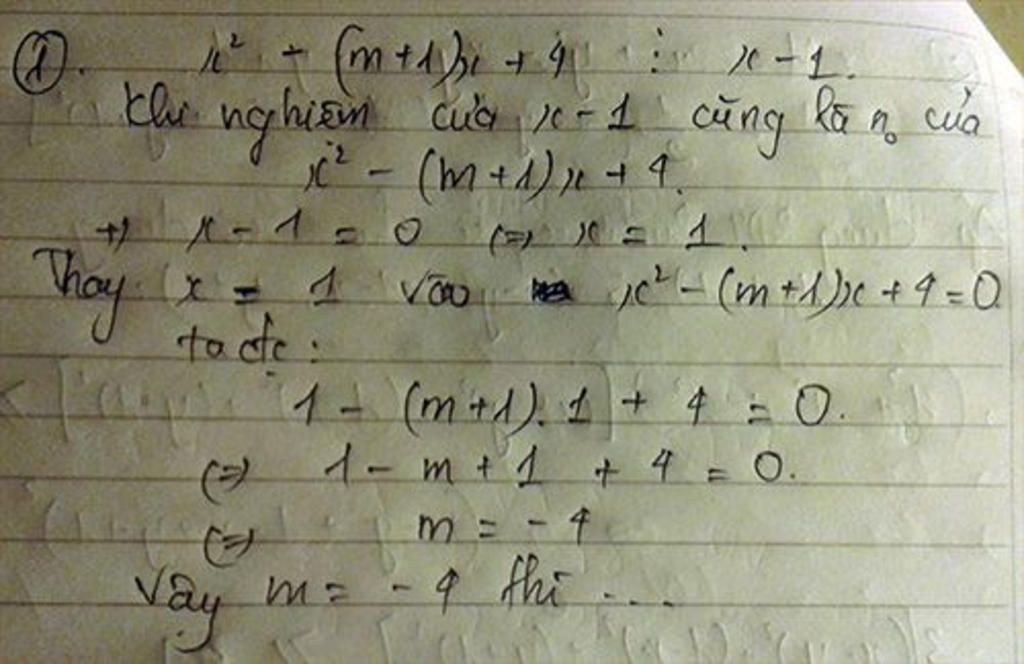 ①. x² - (m+1)x + 4 ⋮ x - 1.
Khi nghiệm của x - 1 cũng là n₀ của
x² - (m+1)x + 4.
+) x - 1 = 0 (=) x = 1.
Thay x = 1 vào x² - (m+1)x + 4 = 0
ta đc:
1 - (m+1).1 + 4 = 0.
(=) 1 - m + 1 + 4 = 0.
(=) m = - 4
Vậy m = - 4 thì ....